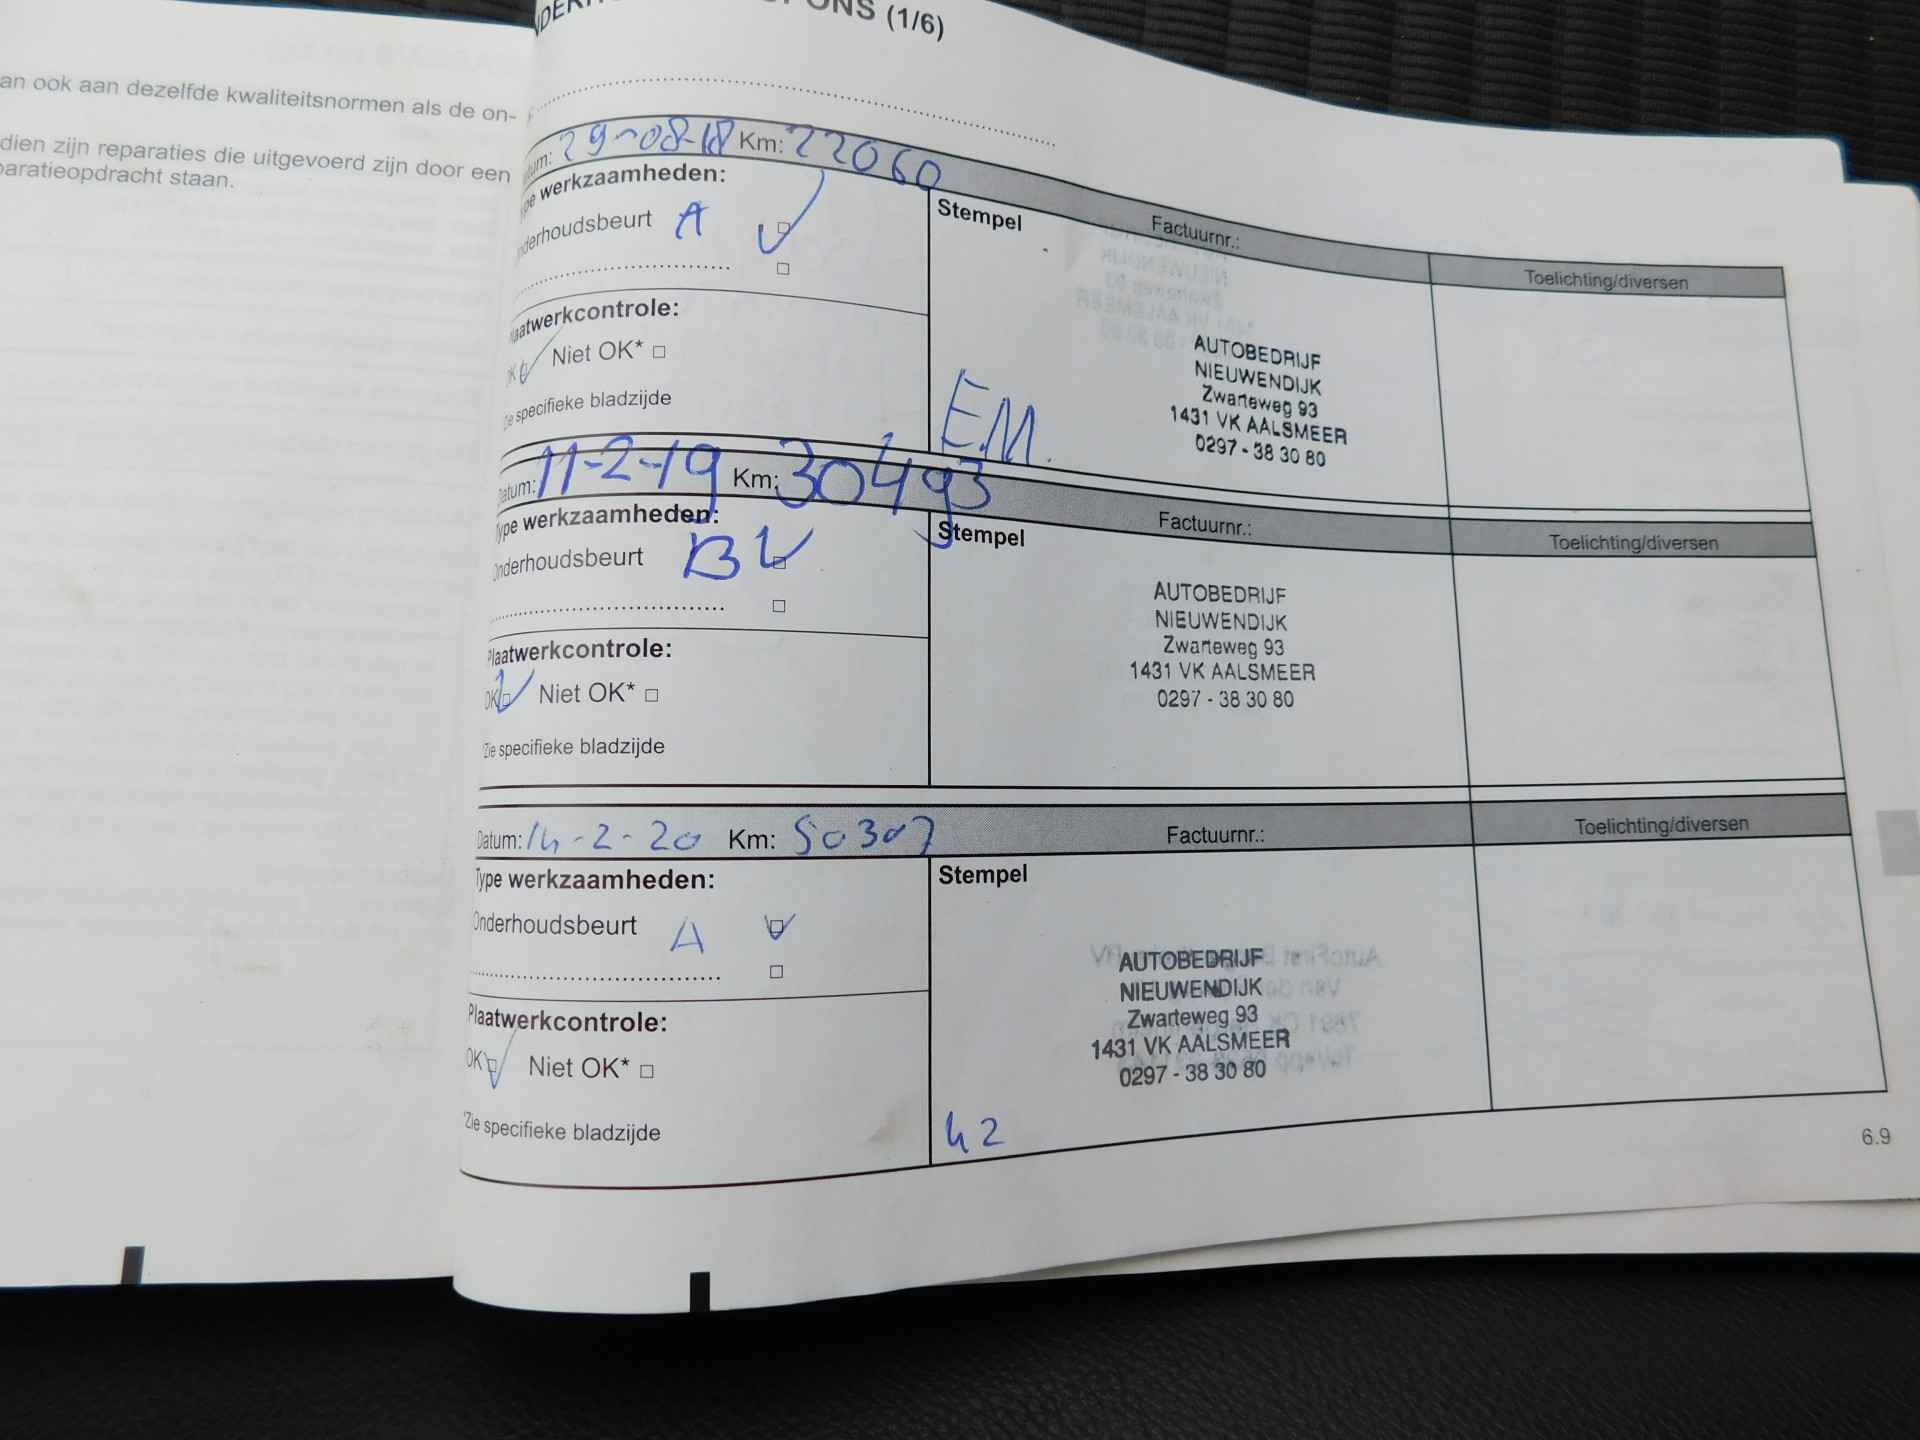 an ook aan dezelfde kwaliteitsnormen als de on-
dien zijn reparaties die uitgevoerd zijn door een
paratieopdracht staan.
(1/6)
Datum: 29-08-18 Km: 22060
Type werkzaamheden:
Onderhoudsbeurt A
Plaatwerkcontrole:
OK Niet OK*
Zie specifieke bladzijde
Stempel
Factuurnr.:
Toelichting/diversen
AUTOBEDRIJF
NIEUWENDIJK
Zwarteweg 93
1431 VK AALSMEER
0297 - 38 30 80
E.M.
Datum: 11-2-19 Km: 30493
Type werkzaamheden:
Onderhoudsbeurt B
Plaatwerkcontrole:
OK Niet OK*
*Zie specifieke bladzijde
Stempel
Factuurnr.:
Toelichting/diversen
AUTOBEDRIJF
NIEUWENDIJK
Zwarteweg 93
1431 VK AALSMEER
0297 - 38 30 80
Datum: 14-2-20 Km: 50307
Type werkzaamheden:
Onderhoudsbeurt A
Plaatwerkcontrole:
OK Niet OK*
*Zie specifieke bladzijde
Stempel
Factuurnr.:
Toelichting/diversen
AUTOBEDRIJF
NIEUWENDIJK
Zwarteweg 93
1431 VK AALSMEER
0297 - 38 30 80
42
6.9